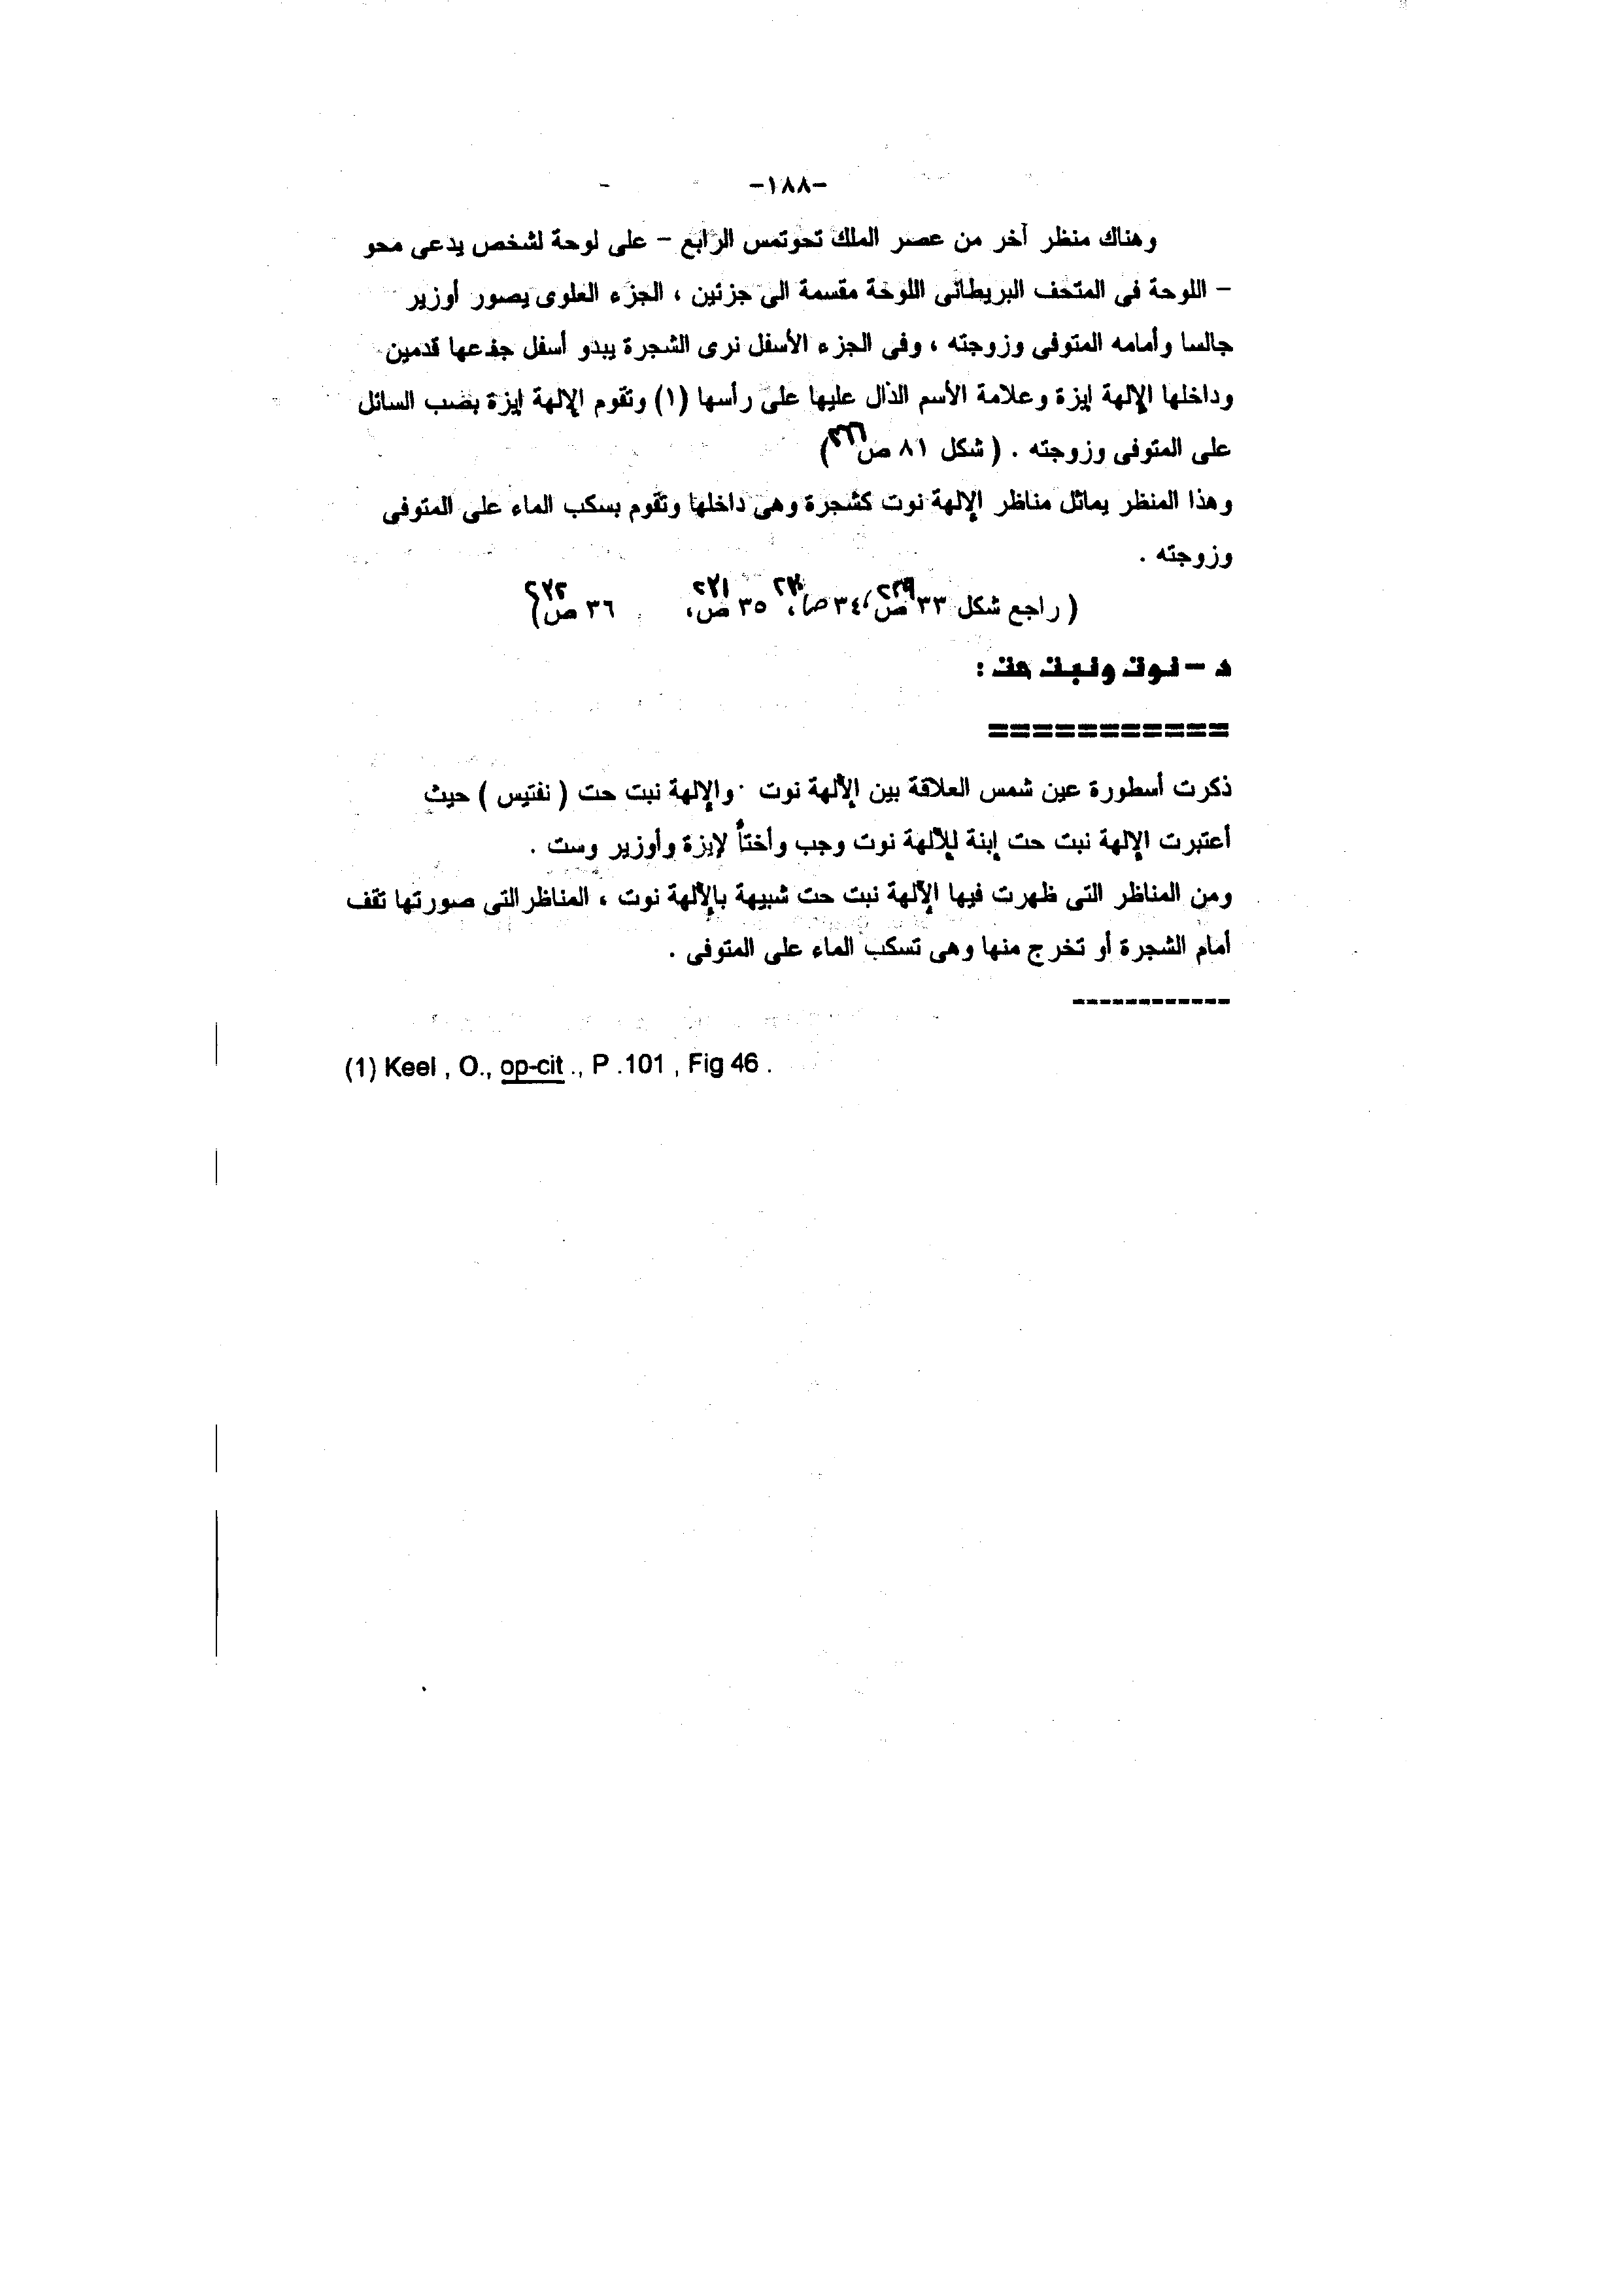 -١٨٨-
وهناك منظر آخر من عصر الملك تحوتمس الرابع - على لوحة لشخص يدعى محو
- اللوحة فى المتحف البريطانى اللوحة مقسمة الى جزئين ، الجزء العلوى يصور أوزير
جالسا وأمامه المتوفى وزوجته ، وفى الجزء الأسفل نرى الشجرة يبدو أسفل جذعها قدمين
وداخلها الإلهة إيزة وعلامة الأسم الدال عليها على رأسها (١) وتقوم الإلهة إيزة بصب السائل
على المتوفى وزوجته . ( شكل ٨١ ص )
وهذا المنظر يماثل مناظر الإلهة نوت كشجرة وهى داخلها وتقوم بسكب الماء على المتوفى
وزوجته .
( راجع شكل ٣٣ ص ، ٣٤ ص ، ٣٥ ص ٢٧١ ، ٣٦ ص ٢٧٢ )
د - نوت ونبت حت :
===========
ذكرت أسطورة عين شمس العلاقة بين الإلهة نوت والإلهة نبت حت ( نفتيس ) حيث
أعتبرت الإلهة نبت حت إبنة للإلهة نوت وجب وأختاً لإيزة وأوزير وست .
ومن المناظر التى ظهرت فيها الإلهة نبت حت شبيهة بالإلهة نوت ، المناظر التى صورتها تقف
أمام الشجرة أو تخرج منها وهى تسكب الماء على المتوفى .
------------
(1) Keel , O., op-cit ., P .101 , Fig 46 .